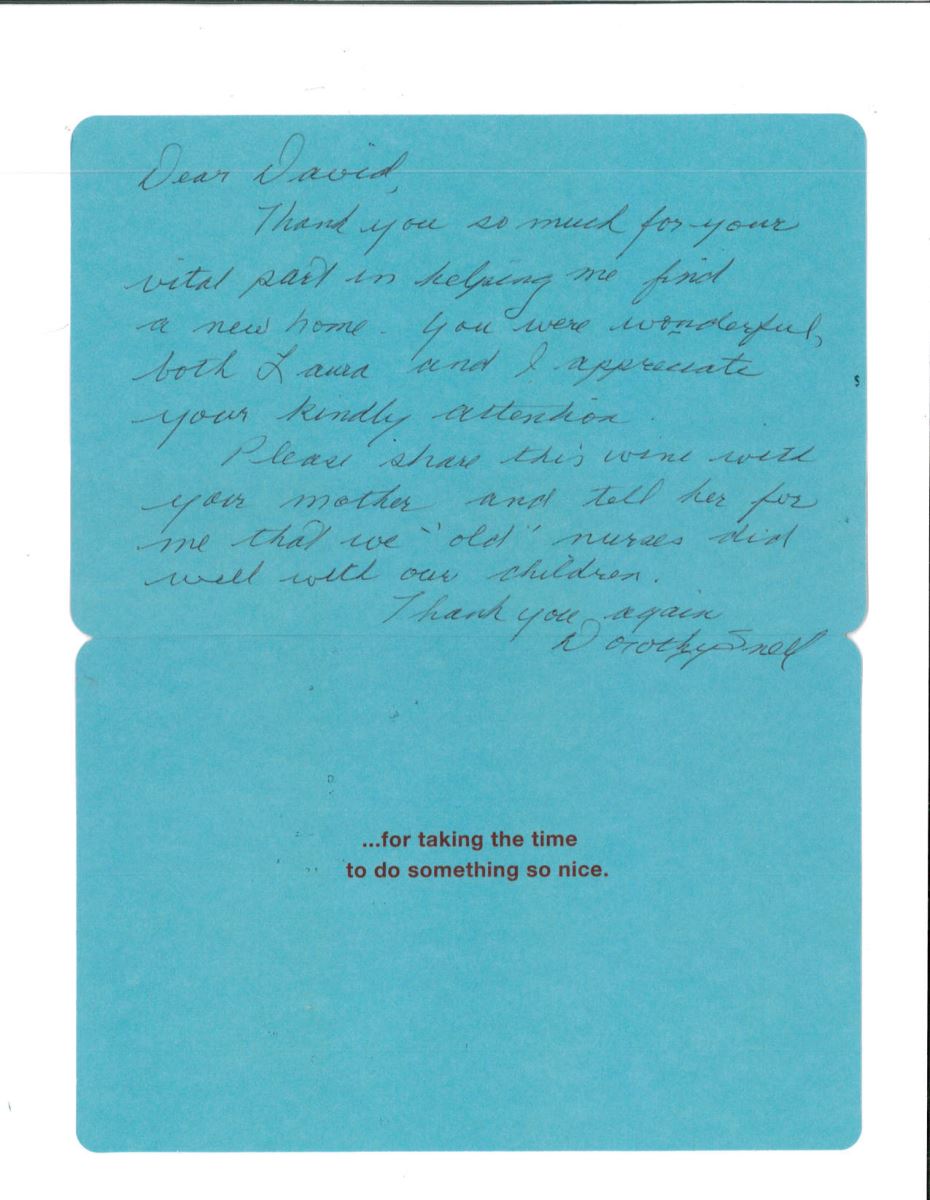 Dear David,
Thank you so much for your
vital part in helping me find
a new home. You were wonderful,
both Laura and I appreciate
your kindly attention.
Please share this wine with
your mother and tell her for
me that we "old" nurses did
well with our children.
Thank you again
Dorothy Snell
...for taking the time
to do something so nice.